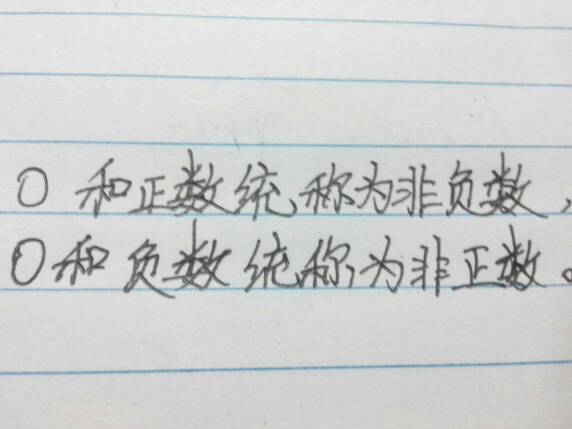 0 和正数统称为非负数,
0和负数统称为非正数。